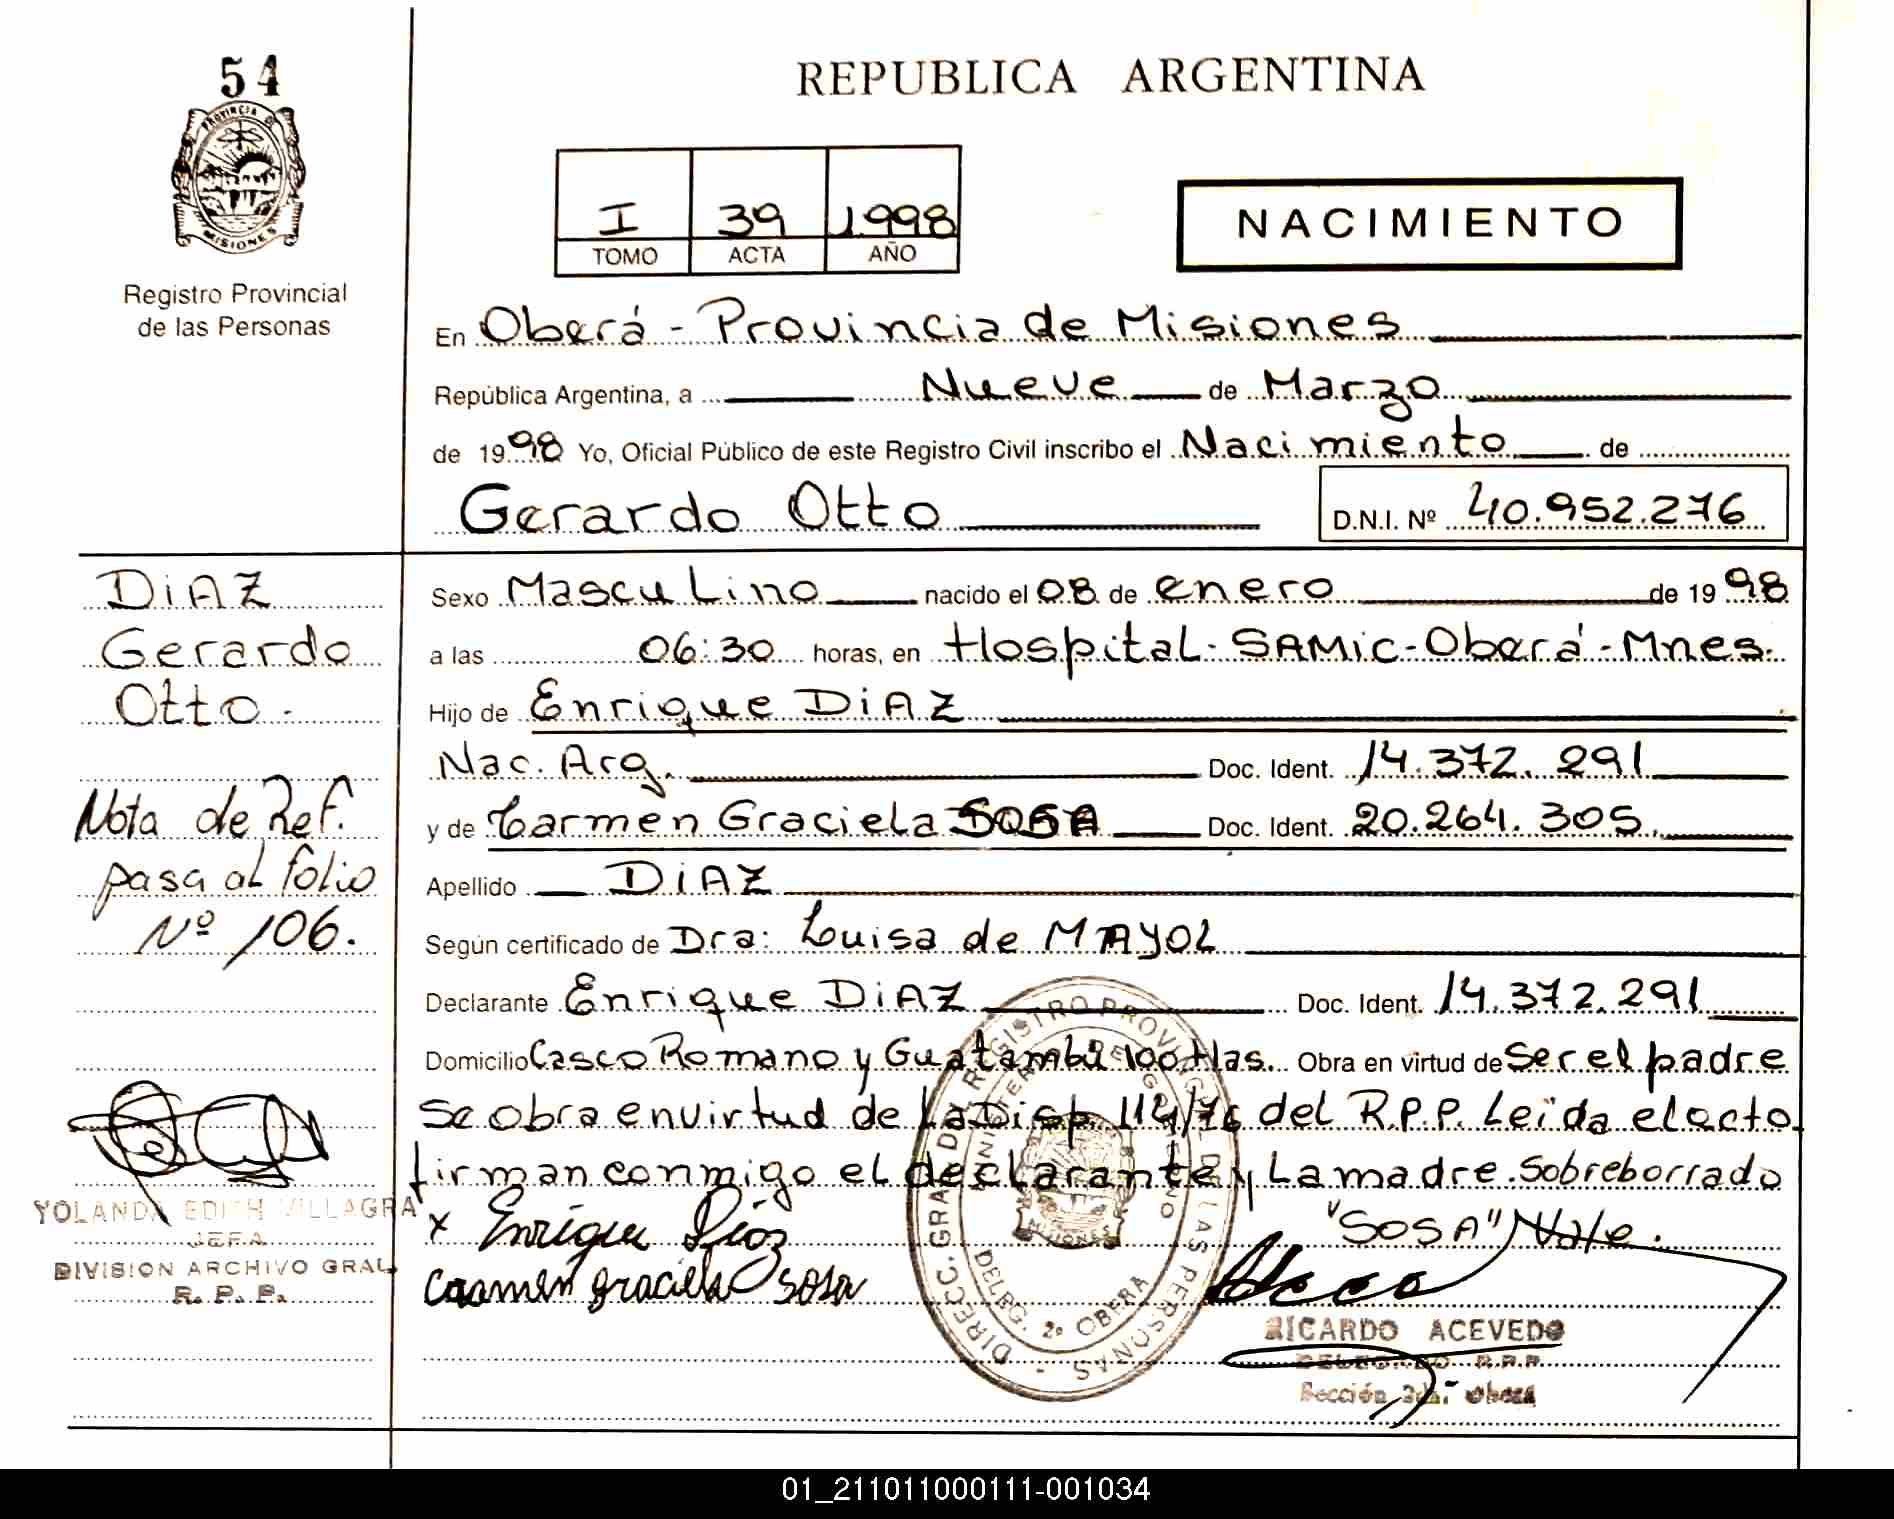 54
PROVINCIA DE
MISIONES
Registro Provincial
de las Personas
REPUBLICA ARGENTINA
I 39 1998
TOMO ACTA AÑO
NACIMIENTO
En Oberá - Provincia de Misiones
República Argentina, a Nueve de Marzo
de 1998 Yo, Oficial Público de este Registro Civil inscribo el Nacimiento de
Gerardo Otto D.N.I. Nº 40.952.276
DiAZ
Gerardo
Otto.
Nota de Ref.
pasa al folio
Nº 106.
YOLANDA EDITH VILLAGRA
JEFA
DIVISION ARCHIVO GRAL.
R. P. P.
Sexo Masculino nacido el 08 de enero de 1998
a las 06:30 horas, en Hospital - SAMic - Oberá - Mnes.
Hijo de Enrique DiAZ
Nac. Arg. Doc. Ident. 14.372.291
y de Carmen Graciela SOSA Doc. Ident. 20.264.305.
Apellido DiAZ
Según certificado de Dra: Luisa de MAYOL
Declarante Enrique DiAZ Doc. Ident. 14.372.291
Domicilio Casco Romano y Guatambú 100 Has. Obra en virtud de Ser el padre
Se obra en virtud de La Disp. 114/76 del R.P.P. Leída el acto
firman conmigo el declarante y La madre. Sobreborrado
"SOSA" Vale.
x Enrique Díaz
Carmen Graciela Sosa
DIRECC. GRAL. DEL REGISTRO PROVINCIAL DE LAS PERSONAS
MINISTERIO DE GOBIERNO
MISIONES
DELEG. 2º OBERA
RICARDO ACEVEDO
DELEGADO R.P.P.
Sección 2da. Oberá
01_211011000111-001034